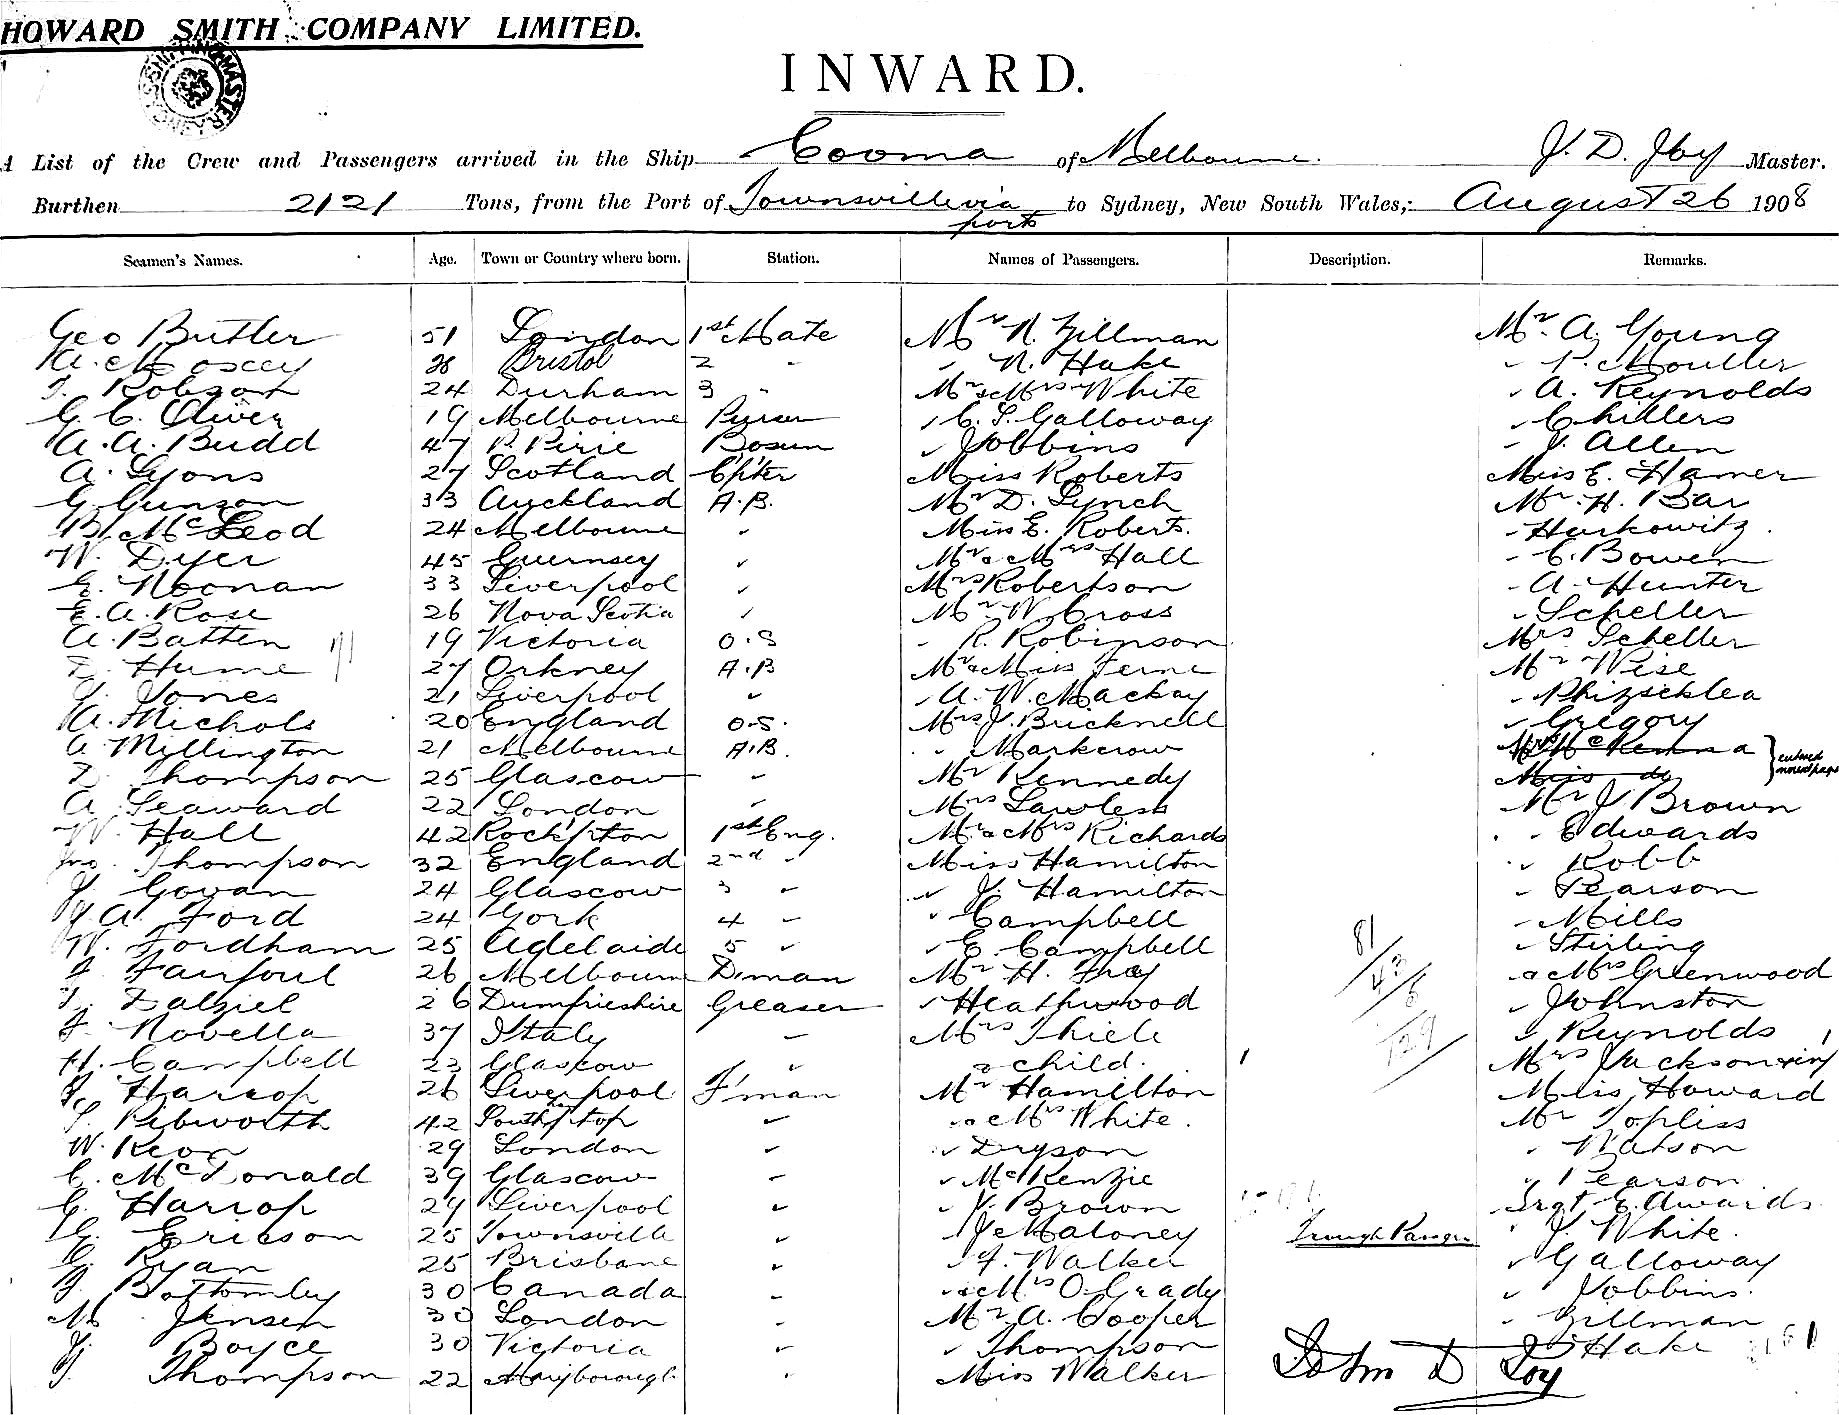 HOWARD SMITH COMPANY LIMITED.
INWARD.
A List of the Crew and Passengers arrived in the Ship Cooma of Melbourne. J. D. Joy Master.
Burthen 2121 Tons, from the Port of Townsville via ports to Sydney, New South Wales, August 26 1908
Seamen's Names. Age. Town or Country where born. Station. Names of Passengers. Description. Remarks.
Geo Butler 51 London 1st Mate Mr N. Zillman Mr. A. Young
A. Moscey Bristol 2 " N. Hake " P. Moulter
T. Robson 24 Durham 3 " Mr & Mrs White " A. Reynolds
G. C. Oliver 19 Melbourne Purser " C. S. Galloway " Chillers
A. A. Budd 47 P. Pirie Bosun " Jobbins " J. Allen
A. Lyons 27 Scotland C'p'ter Miss Roberts Miss E. Hamer
G. Gunson 33 Auckland A.B. Mr D. Lynch Mr. H. Bar
B. McLeod 24 Melbourne " Miss E. Roberts. " Harkowitz.
W. Dyer 45 Guernsey " Mr & Mrs Hall " C. Bowen
E. Noonan 33 Liverpool " Mrs Robertson " A. Hunter
E. A. Rose 26 Nova Scotia " Mr W. Cross " Scheller
A. Batten 19 Victoria O.S Mr R. Robinson Mrs Scheller
D. Hume 27 Orkney A.B Mr & Miss Ferne Mr Wise
J. Jones 21 Liverpool " " A. W. Mackay " Phizseklea
A. Nichols 20 England O.S. Mrs J. Bricknell " Gregory
A. Myllington 21 Melbourne A.B. " Markcrow Mrs McKenna
D. Thompson 25 Glascow " Mr Kennedy Miss do
A. Seaward 22 London " Mrs Lawless Mr J Brown
W. Hall 42 Rock'pton 1st Eng. Mr & Mrs Richards " Edwards
Jno. Thompson 32 England 2nd " Miss Hamilton " Robb
J. Govan 24 Glascow 3 " " J. Hamilton " Pearson
J. A. Ford 24 York 4 " " Campbell " Mills
W. Fordham 25 Adelaide 5 " " E. Campbell " Stirling
J. Fairfoul 26 Melbourne D'man Mr H. Fray & Mrs Greenwood
T. Dalziel 26 Dumfrieshire Greaser " Heathwood " Johnston
F. Novella 37 Italy " Mrs Thiele " Reynolds
H. Campbell 23 Glascow " & child. Mrs Jackson
J. Harrop 26 Liverpool F'man Mr Hamilton Miss Howard
S. Pibworth 42 " & Mrs White. Mr Topliss
W. Keon 29 London " " Dryson " Watson
C. McDonald 39 Glascow " " McKenzie " Pearson
G. Harrop 29 Liverpool " " J. Brown Srgt Edwards.
G. Ericson 25 Townsville " J. Maloney " J. White.
C. Ryan 25 Brisbane " " J. Walker " Galloway
J. Bottomley 30 Canada " & Mrs O'Grady " Jobbins.
M. Jensen 30 London " Mr A. Cooper " Zillman
J. Boyce 30 Victoria " " Thompson " Hake
J. Thompson 22 Maryborough " Miss Walker
81
43
5
129
Through Passgrs
John D Joy